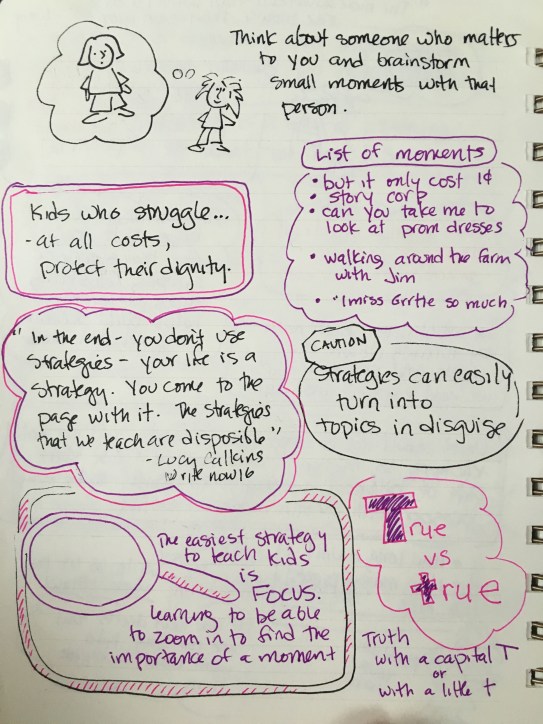 Think about someone who matters
to you and brainstorm
small moments with that
person.
List of moments
• but it only cost 1¢
• story corp
• can you take me to
look at prom dresses
• walking around the farm
with Jim
• "I miss so much
Kids who struggle...
- at all costs,
protect their dignity.
"In the end - you don't use
strategies - your life is a
strategy. You come to the
page with it. The strategies
that we teach are disposible"
- Lucy Calkins
write now 16
CAUTION
Strategies can easily
turn into
topics in disguise
The easiest strategy
to teach kids
is
FOCUS.
learning to be able
to zoom in to find the
importance of a moment
True
vs
true
Truth
with a capital T
or
with a little t